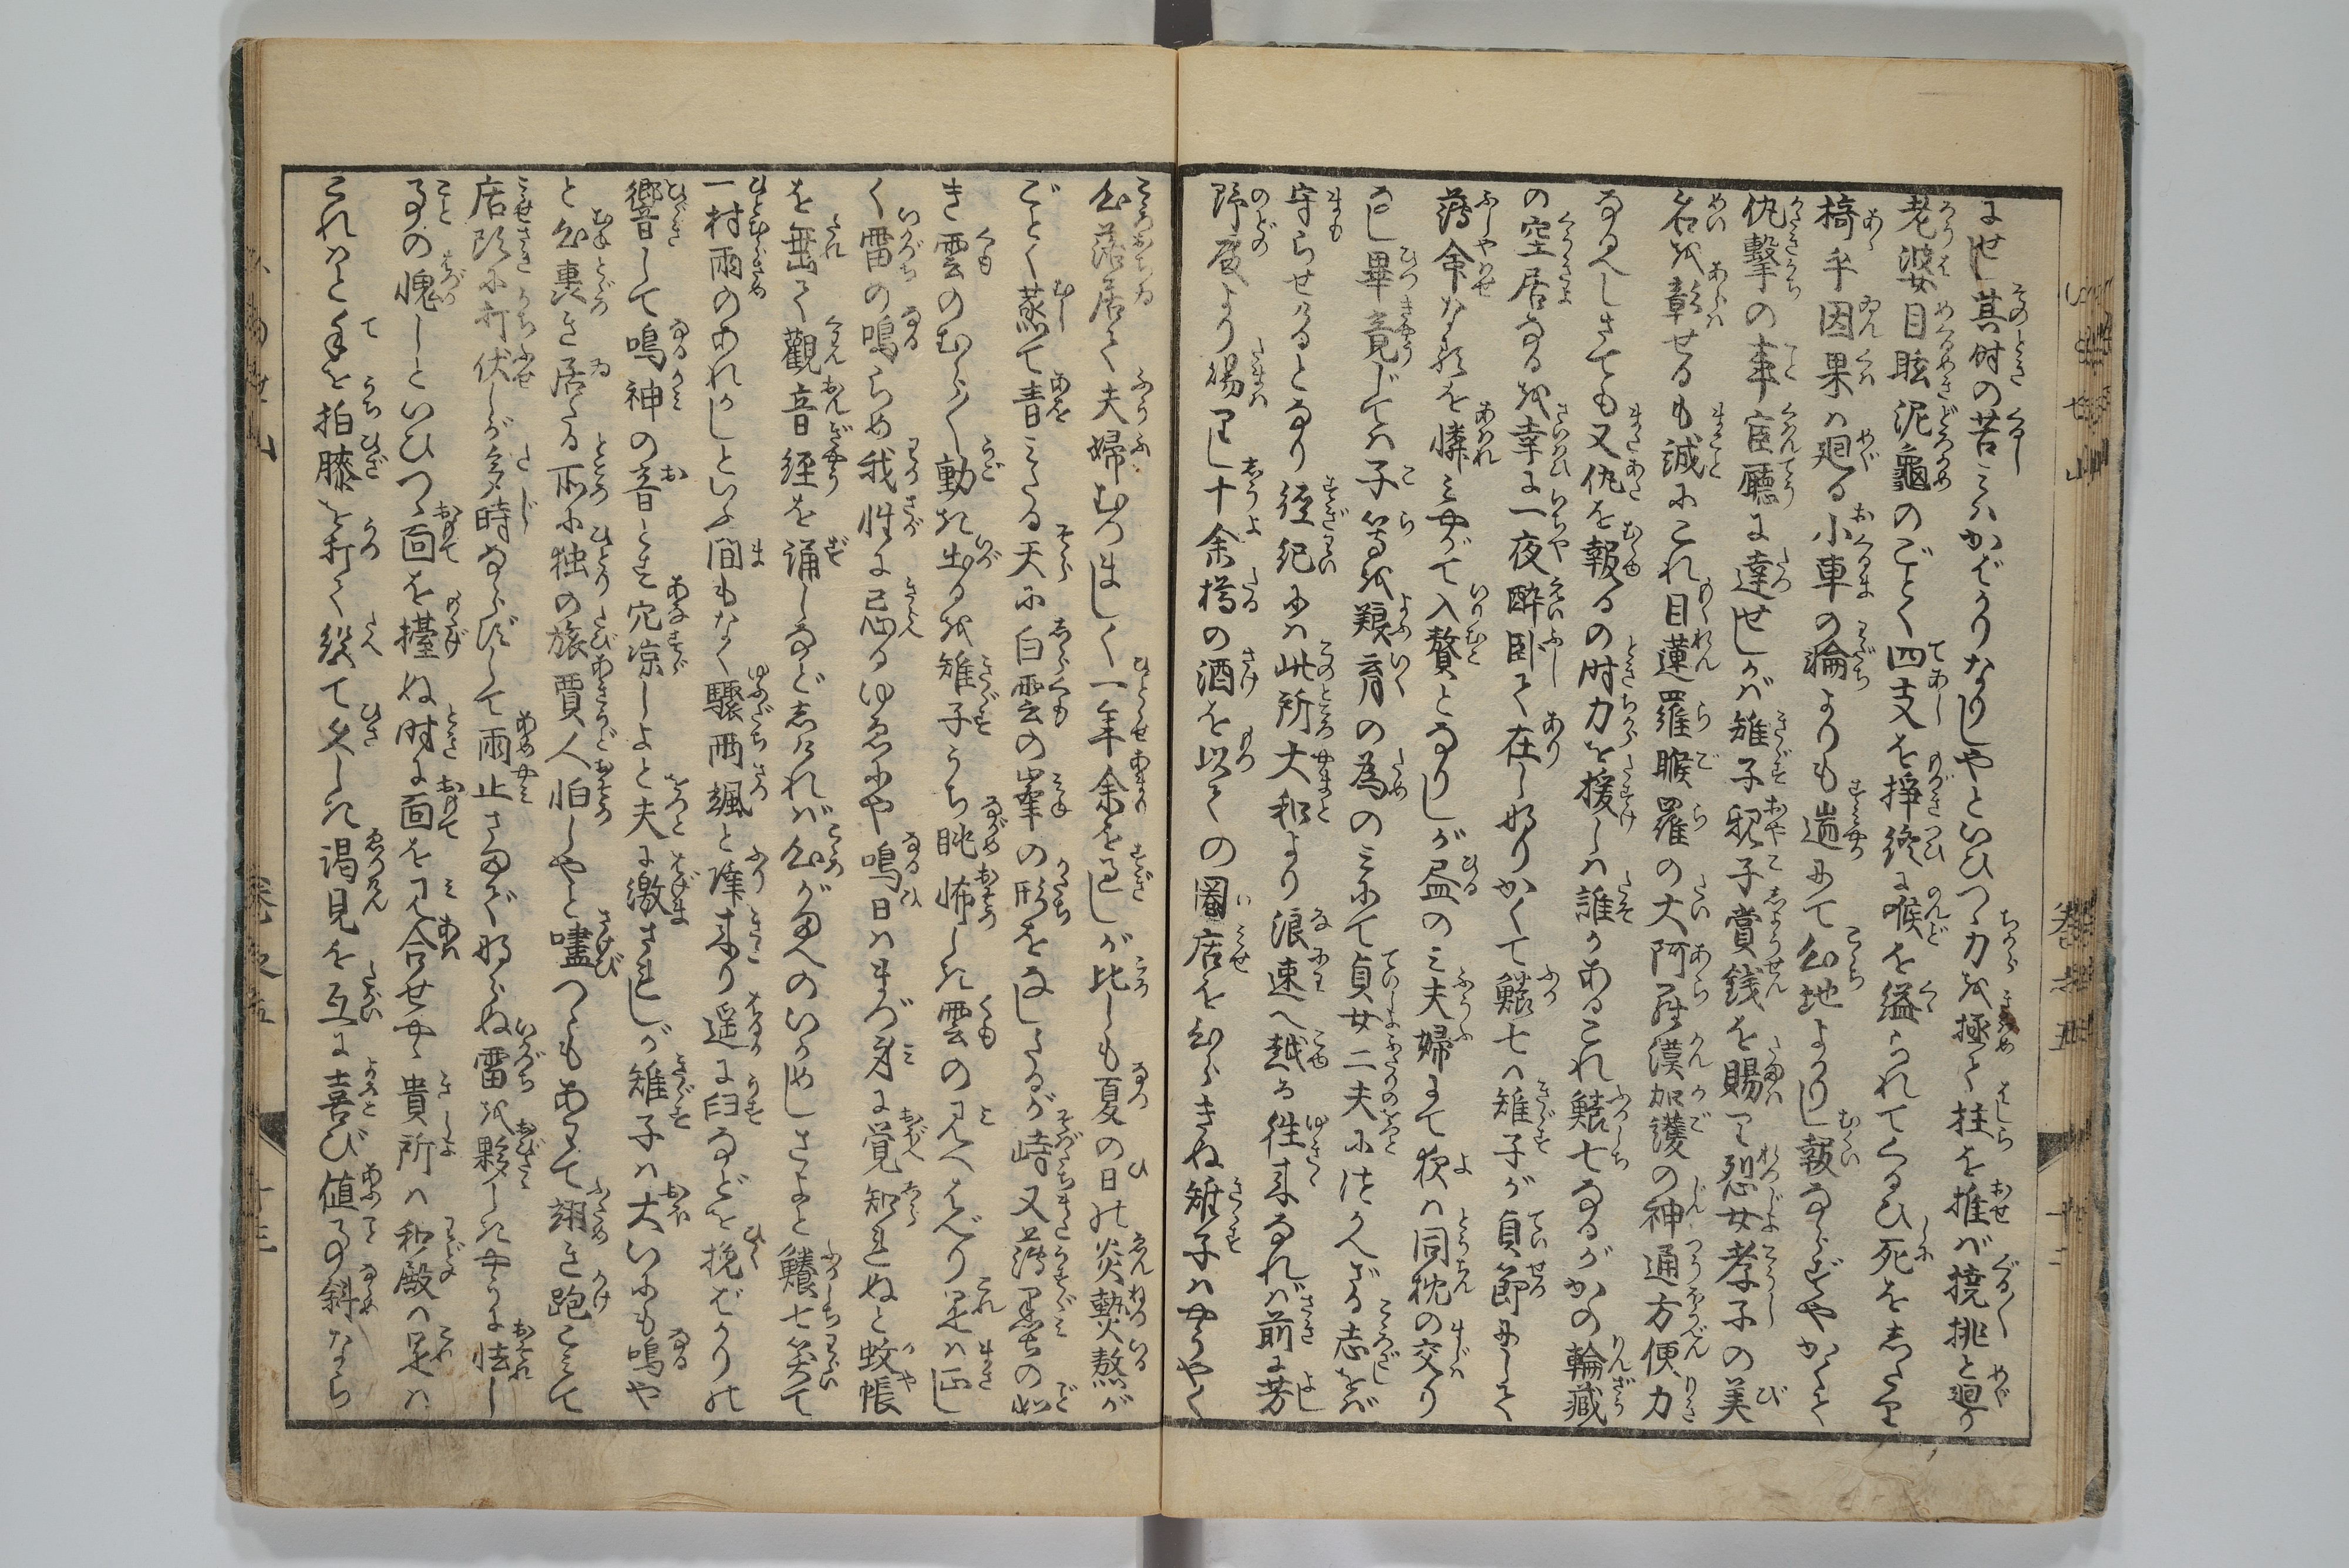 よせし其時の苦しみハかばかりなりしやといひつゝ力を極て柱を推せバ撓挑と廻り
老婆目眩泥龜のごとく四支を掙終に喉を縊られてくるひ死をしたり
椅乎因果ハ廻る小車の輪よりも遄にて心地よかりし報ならずやかくて
仇撃の事官廳に達せしかバ雉子親子賞銭を賜り烈女孝子の美
名を彰せるも誠にこれ目蓮羅睺羅の大阿羅漢加護の神通方便力
なるべしさても又仇を報るの時力を援しハ誰かあるこれ鱶七なるがかの輪藏
の空居なるを幸に一夜酔卧て在しなりかくて鱶七ハ雉子が貞節にして
薄命なるを憐みやがて入贅となりしが昼のミ夫婦にて夜ハ同枕の交り
なし畢竟じてハ子等を養育の為のミにて貞女二夫に仕かへざる志をバ
守らせけるとなり徑紀にハ此所大和より浪速へ越る往来なれバ前に芳
野殿より賜りし十余樽の酒を以ての圏店をひらきね雉子ハやうやく
心落居て夫婦むつましく一年余を過しが比しも夏の日の炎熱熬が
ごとく蒸て青ミたる天に白雲の峯の形をなしたるが峙又薄墨の如
き雲のむら〳〵動き出るを雉子うち眺怖しき雲の見へはべり是ハ正し
く雷の鳴らめ我性に忌るゆゑにや鳴日ハまづ身に覚知られぬと蚊帳
を垂て觀音経を誦しなどしけれバ心がまへのいかめしさよと鱶七笑て
一村雨のあれかしといふ間もなく驟雨颯と降来り遥に臼などを挽ばかりの
響して鳴神の音とす穴凉しよと夫に激されしが雉子ハ大いにも鳴や
と心裏き居たる所に独の旅賈人怕しやと嘘つゝもあはて翊き跑こミて
店頭に打伏しが多時ならずして雨止さまでならぬ雷を夥しきやうに怯し
事の愧しといひつゝ面を擡ぬ時に面を見合せやゝ貴所ハ和殿ハ是ハ
これハと手を拍膝を打て絶て久しき謁見を互に喜び値事斜なら